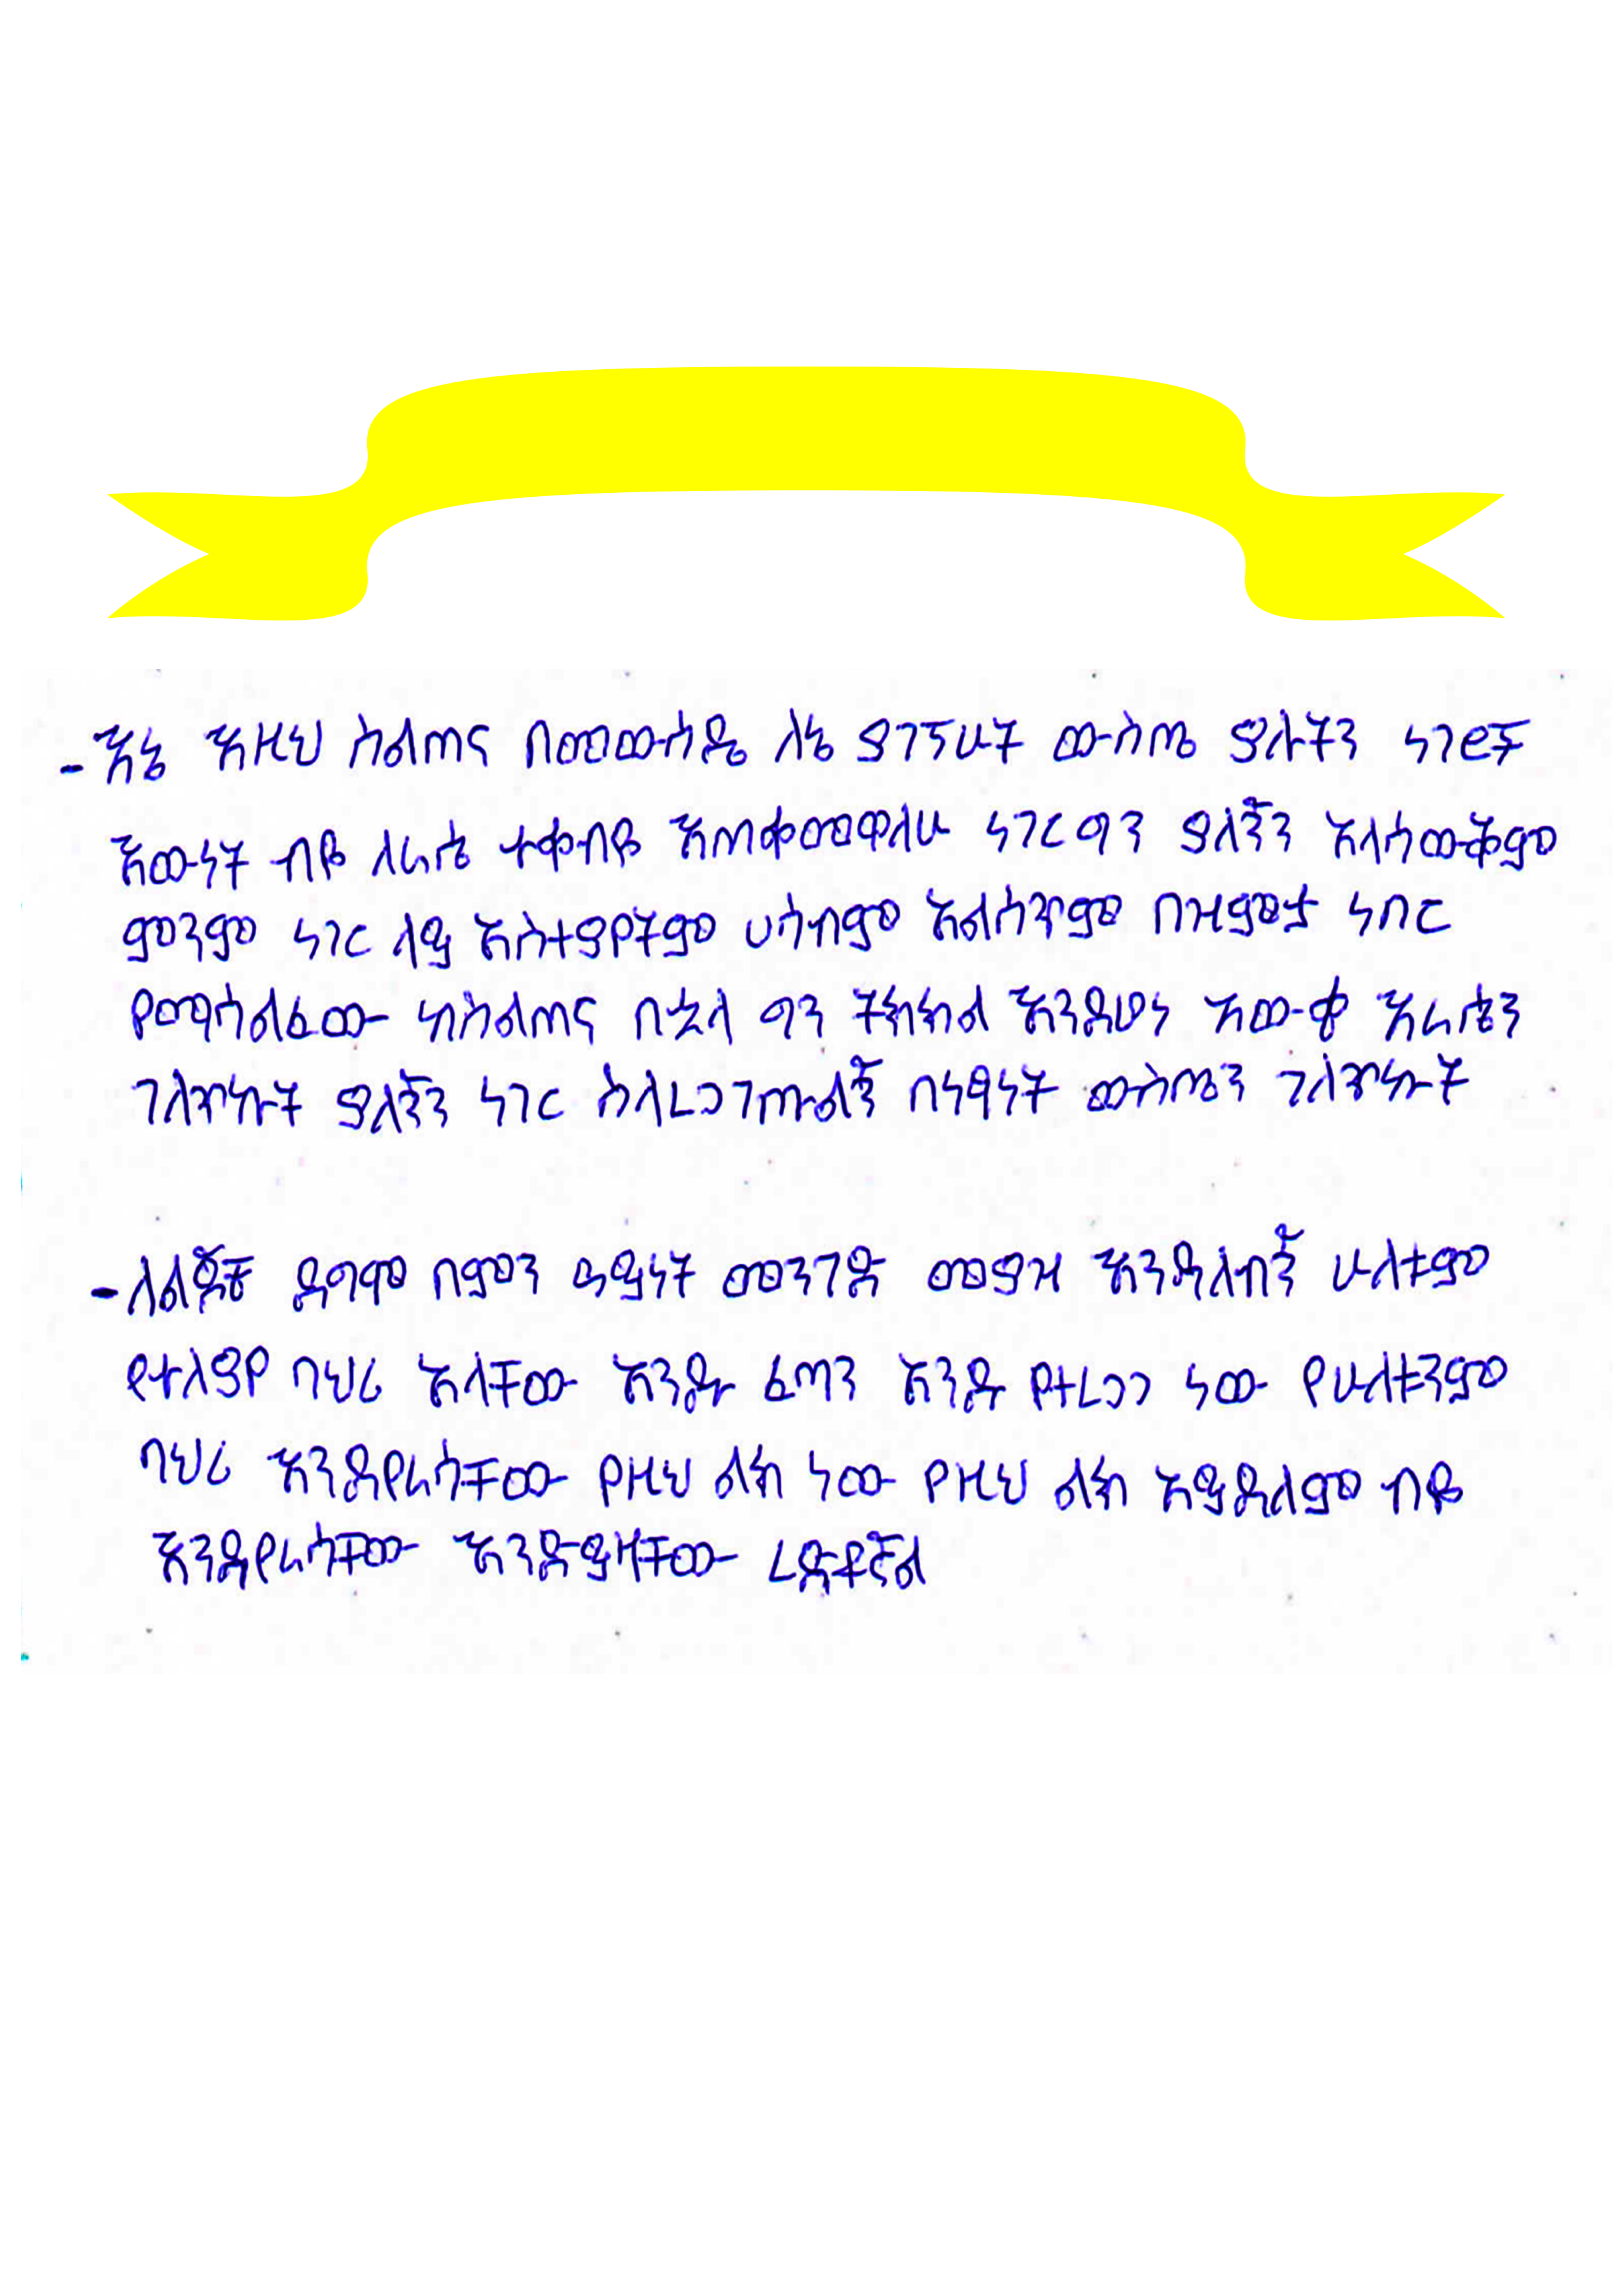 - እኔ እዚህ ስልጠና በመውሰዴ ለኔ ያገኘሁት ውስጤ ያሉትን ነገሮች
እውነት ብዬ ለራሴ ተቀብዬ እጠቀመዋለሁ ነገር ግን ያለኝን አላሳውቅም
ምንም ነገር ላይ አስተያየትም ሀሳብም አልሰጥም በዝምታ ነበር
የማሳልፈው ከስልጠና በኋላ ግን ትክክል እንደሆነ አውቄ እራሴን
ገለጥኩት ያለኝን ነገር ስላረጋገጡልኝ በነፃነት ውስጤን ገለጥኩት
- ለልጆቼ ደግሞ በምን ዓይነት መንገድ መያዝ እንዳለብኝ ሁለቱም
የተለያየ ባህሪ አላቸው አንዱ ፈጣን አንዱ የተረጋጋ ነው የሁለቱንም
ባህሪ እንደየራሳቸው የዚህ ልክ ነው የዚህ ልክ አይደለም ብዬ
እንደየራሳቸው እንድይዛቸው ረድቶኛል